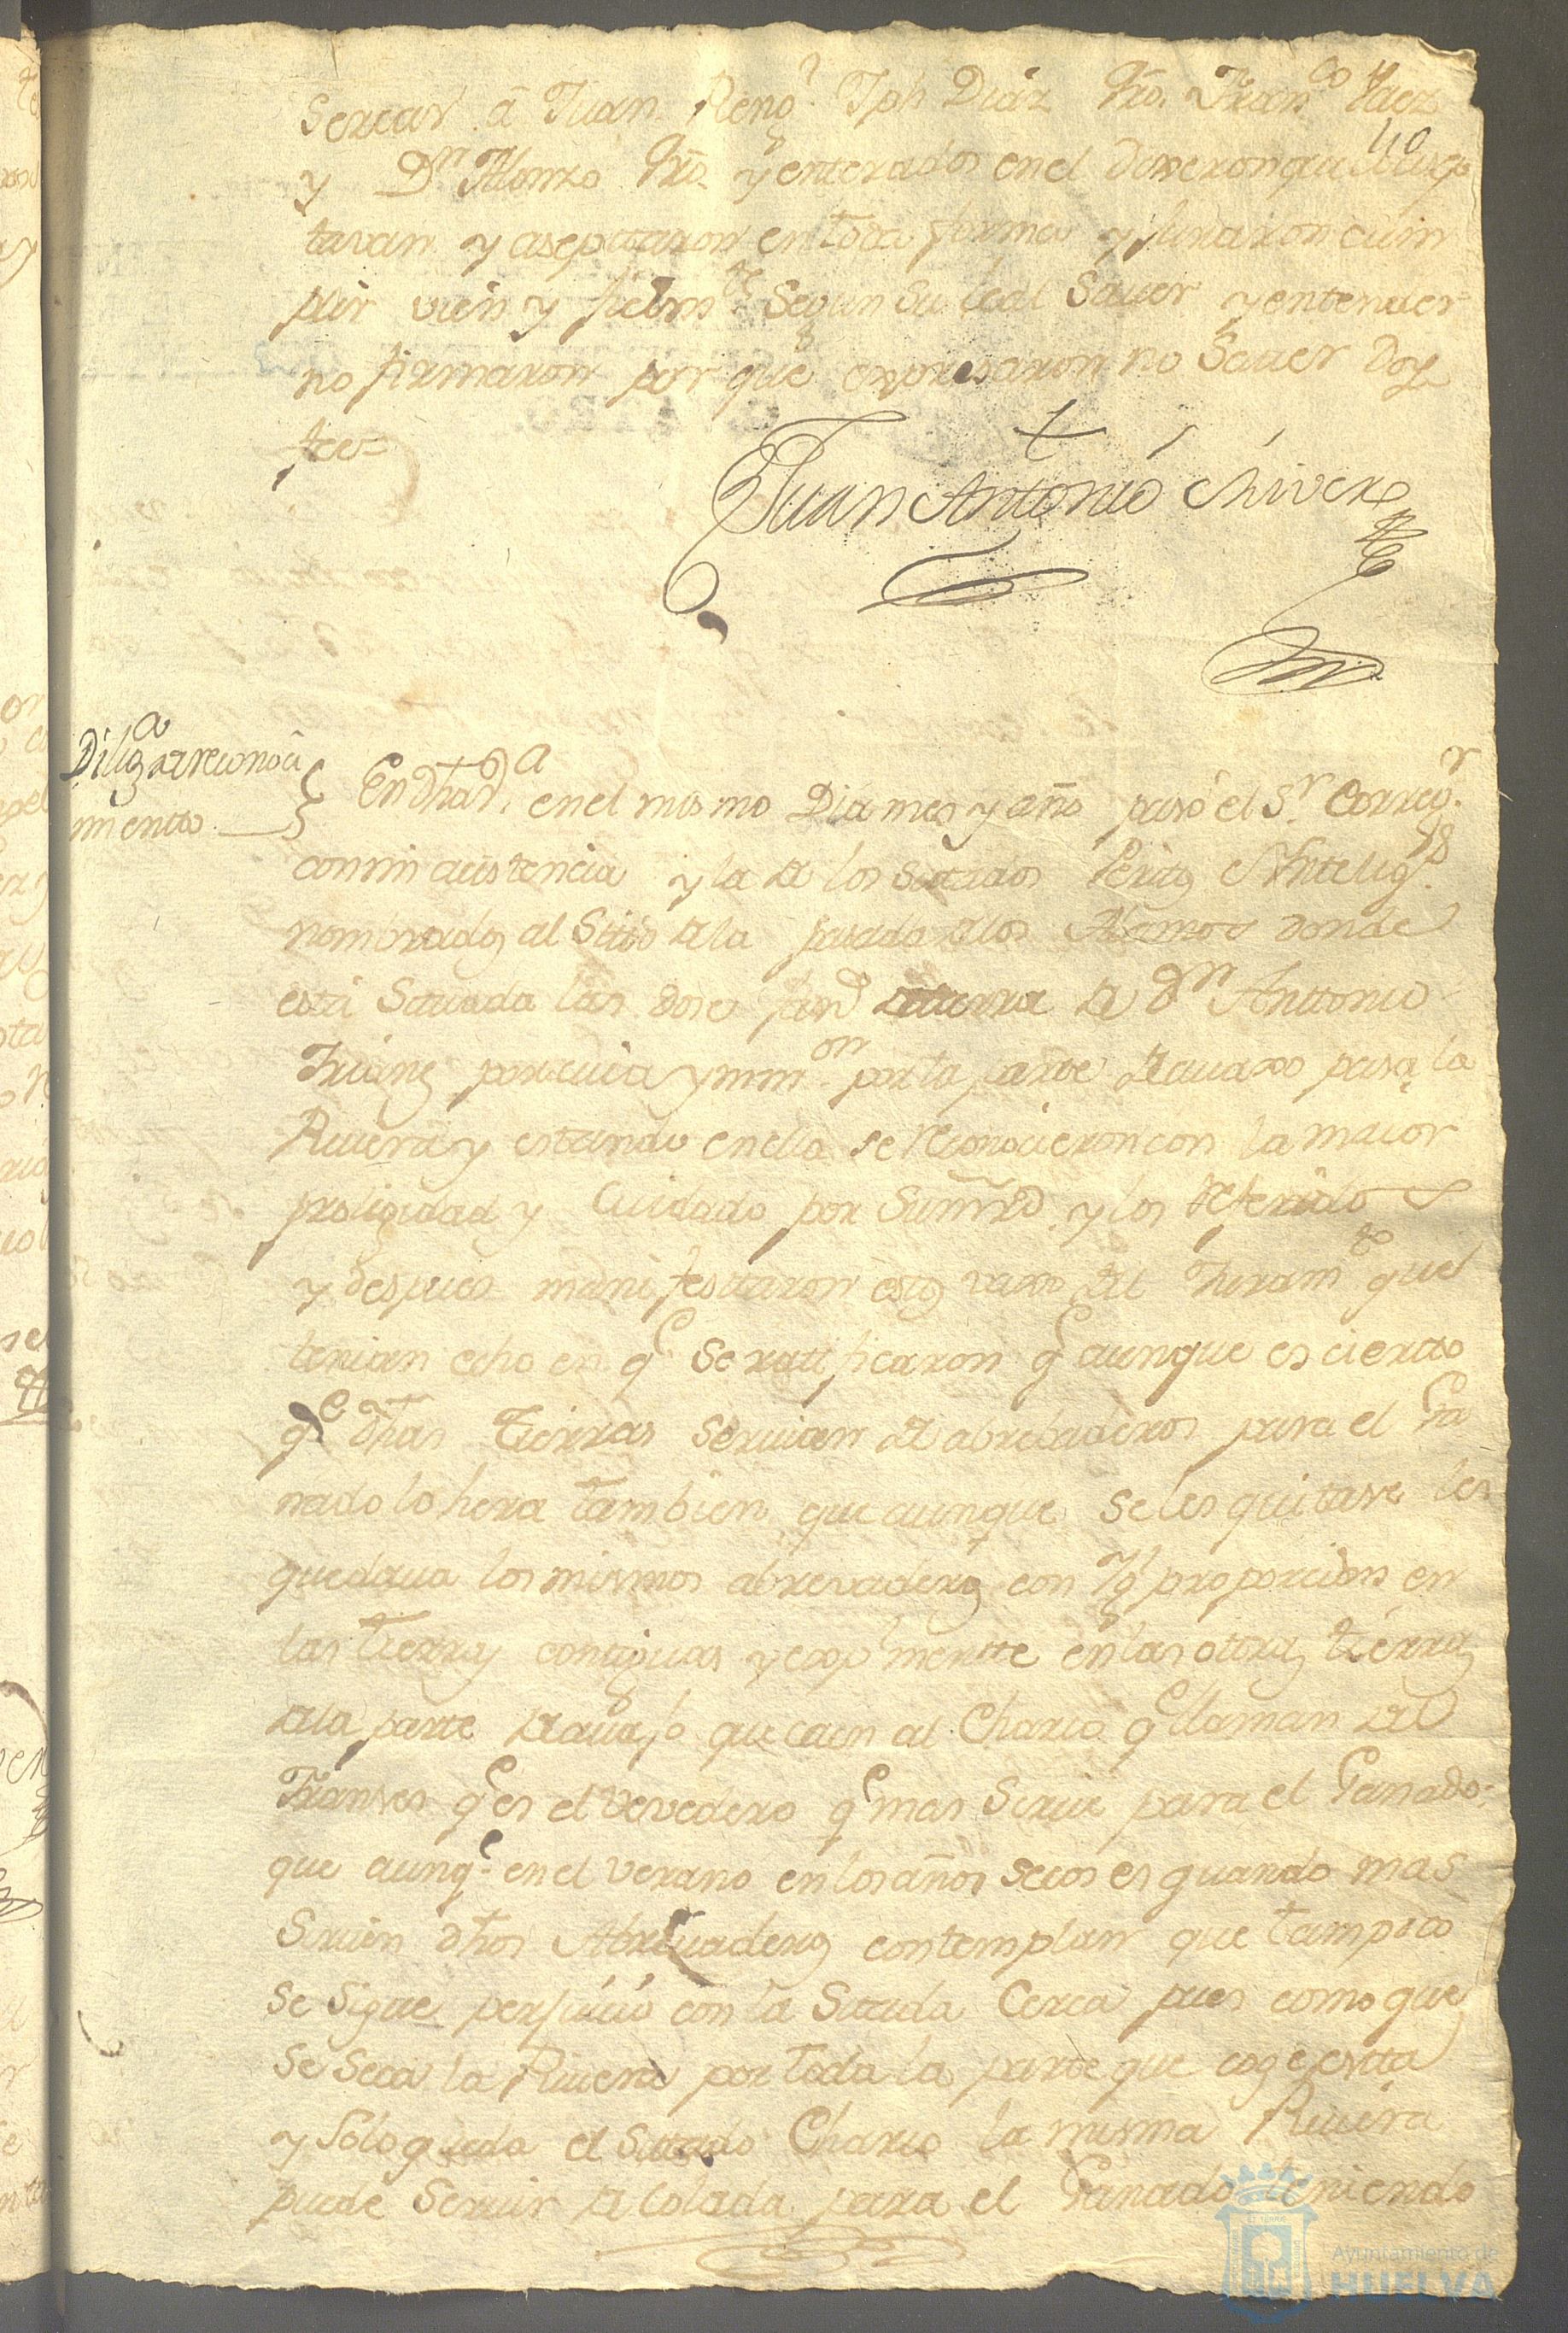 sercar â Juan Reno.. Jph Diaz Pro. Franco. Vaez
110
y Dn Alonzo Pro. y enterados en el dixeron que lo asep
tavan y aseptaron en toda forma y juraron cum
plir vien y fielmte. Segun su leal Saver y entender
no firmaron por que expresaron no Saver Doy
fee=
Juan Antonio Chivero
Dilig.a de reconoci
miento
En dha va. en el mismo Dia mes y año pasó el Sr. Correg.r
con mi asistencia y la de los sitados Peritos Yntelig.s
nombrados al Sitio de la pasada de los Alamos donde
está Situada las dose fan.s de tierra de Dn Anttonio
Trianes por cuia ymm.on por la parte de auaxo pasa la
Riuera y estando en ella se reconocieron con la maior
prolixidad y Cuidado por Su mrd. y los Referidos
y despues manifestaron estos vaxo del Juram.to que
tenian echo en q.e Se ratificaron q.e aunque es cierto
q.e dhas Tierras Seruian de abrebaderos para el Ga
nado lo hera tambien que aunque se les quitase les
quedaua los mismos abrevaderos con Yg.l proporcion en
las tierras contiguas y espl.mentte en las otras tierras
de la parte de auajo que caen al Charco q.e llaman del
Transes q.e es el vevedero q.e mas Serue para el Ganado:
que aunq.e en el verano en los años secos es quando mas
Siruen dhos Abreuaderos contemplan que tampoco
se sigue perjuicio con la Sitada Cerca pues como que
se seca la Riuera por toda la parte que coge esta
y Solo queda el Sitado Charco la misma Riuera
puede Seruir de Colada para el Ganado teniendo
Ayuntamiento de
HUELVA